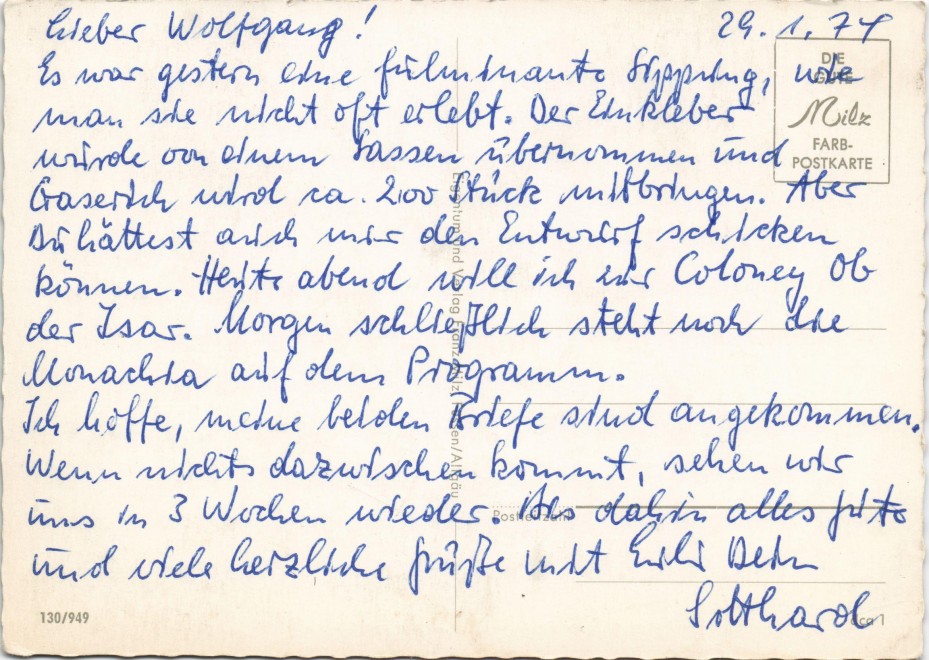 Lieber Wolfgang! 29.1.74
Es war gestern eine fulminante Sippung, wie
man sie nicht oft erlebt. Der Einkleber
wurde von einem Sassen übernommen und
wird ca. 200 Stück mitbringen. Aber
Du hättest auch mir den Entwurf schicken
können. Heute abend will ich zur Coloney Ob
der Isar. Morgen schließlich steht noch die
Monachia auf dem Programm.
Ich hoffe, meine beiden Briefe sind angekommen.
Wenn nichts dazwischen kommt, sehen wir
uns in 3 Wochen wieder. Bis dahin alles Gute
und viele herzliche Grüße mit Dein
Gotthard
DIE
GUTE
Milz
FARB-
POSTKARTE
Eigentum und Verlag Franz Milz, Füssen/Allgäu
Postleitzahl
130/949